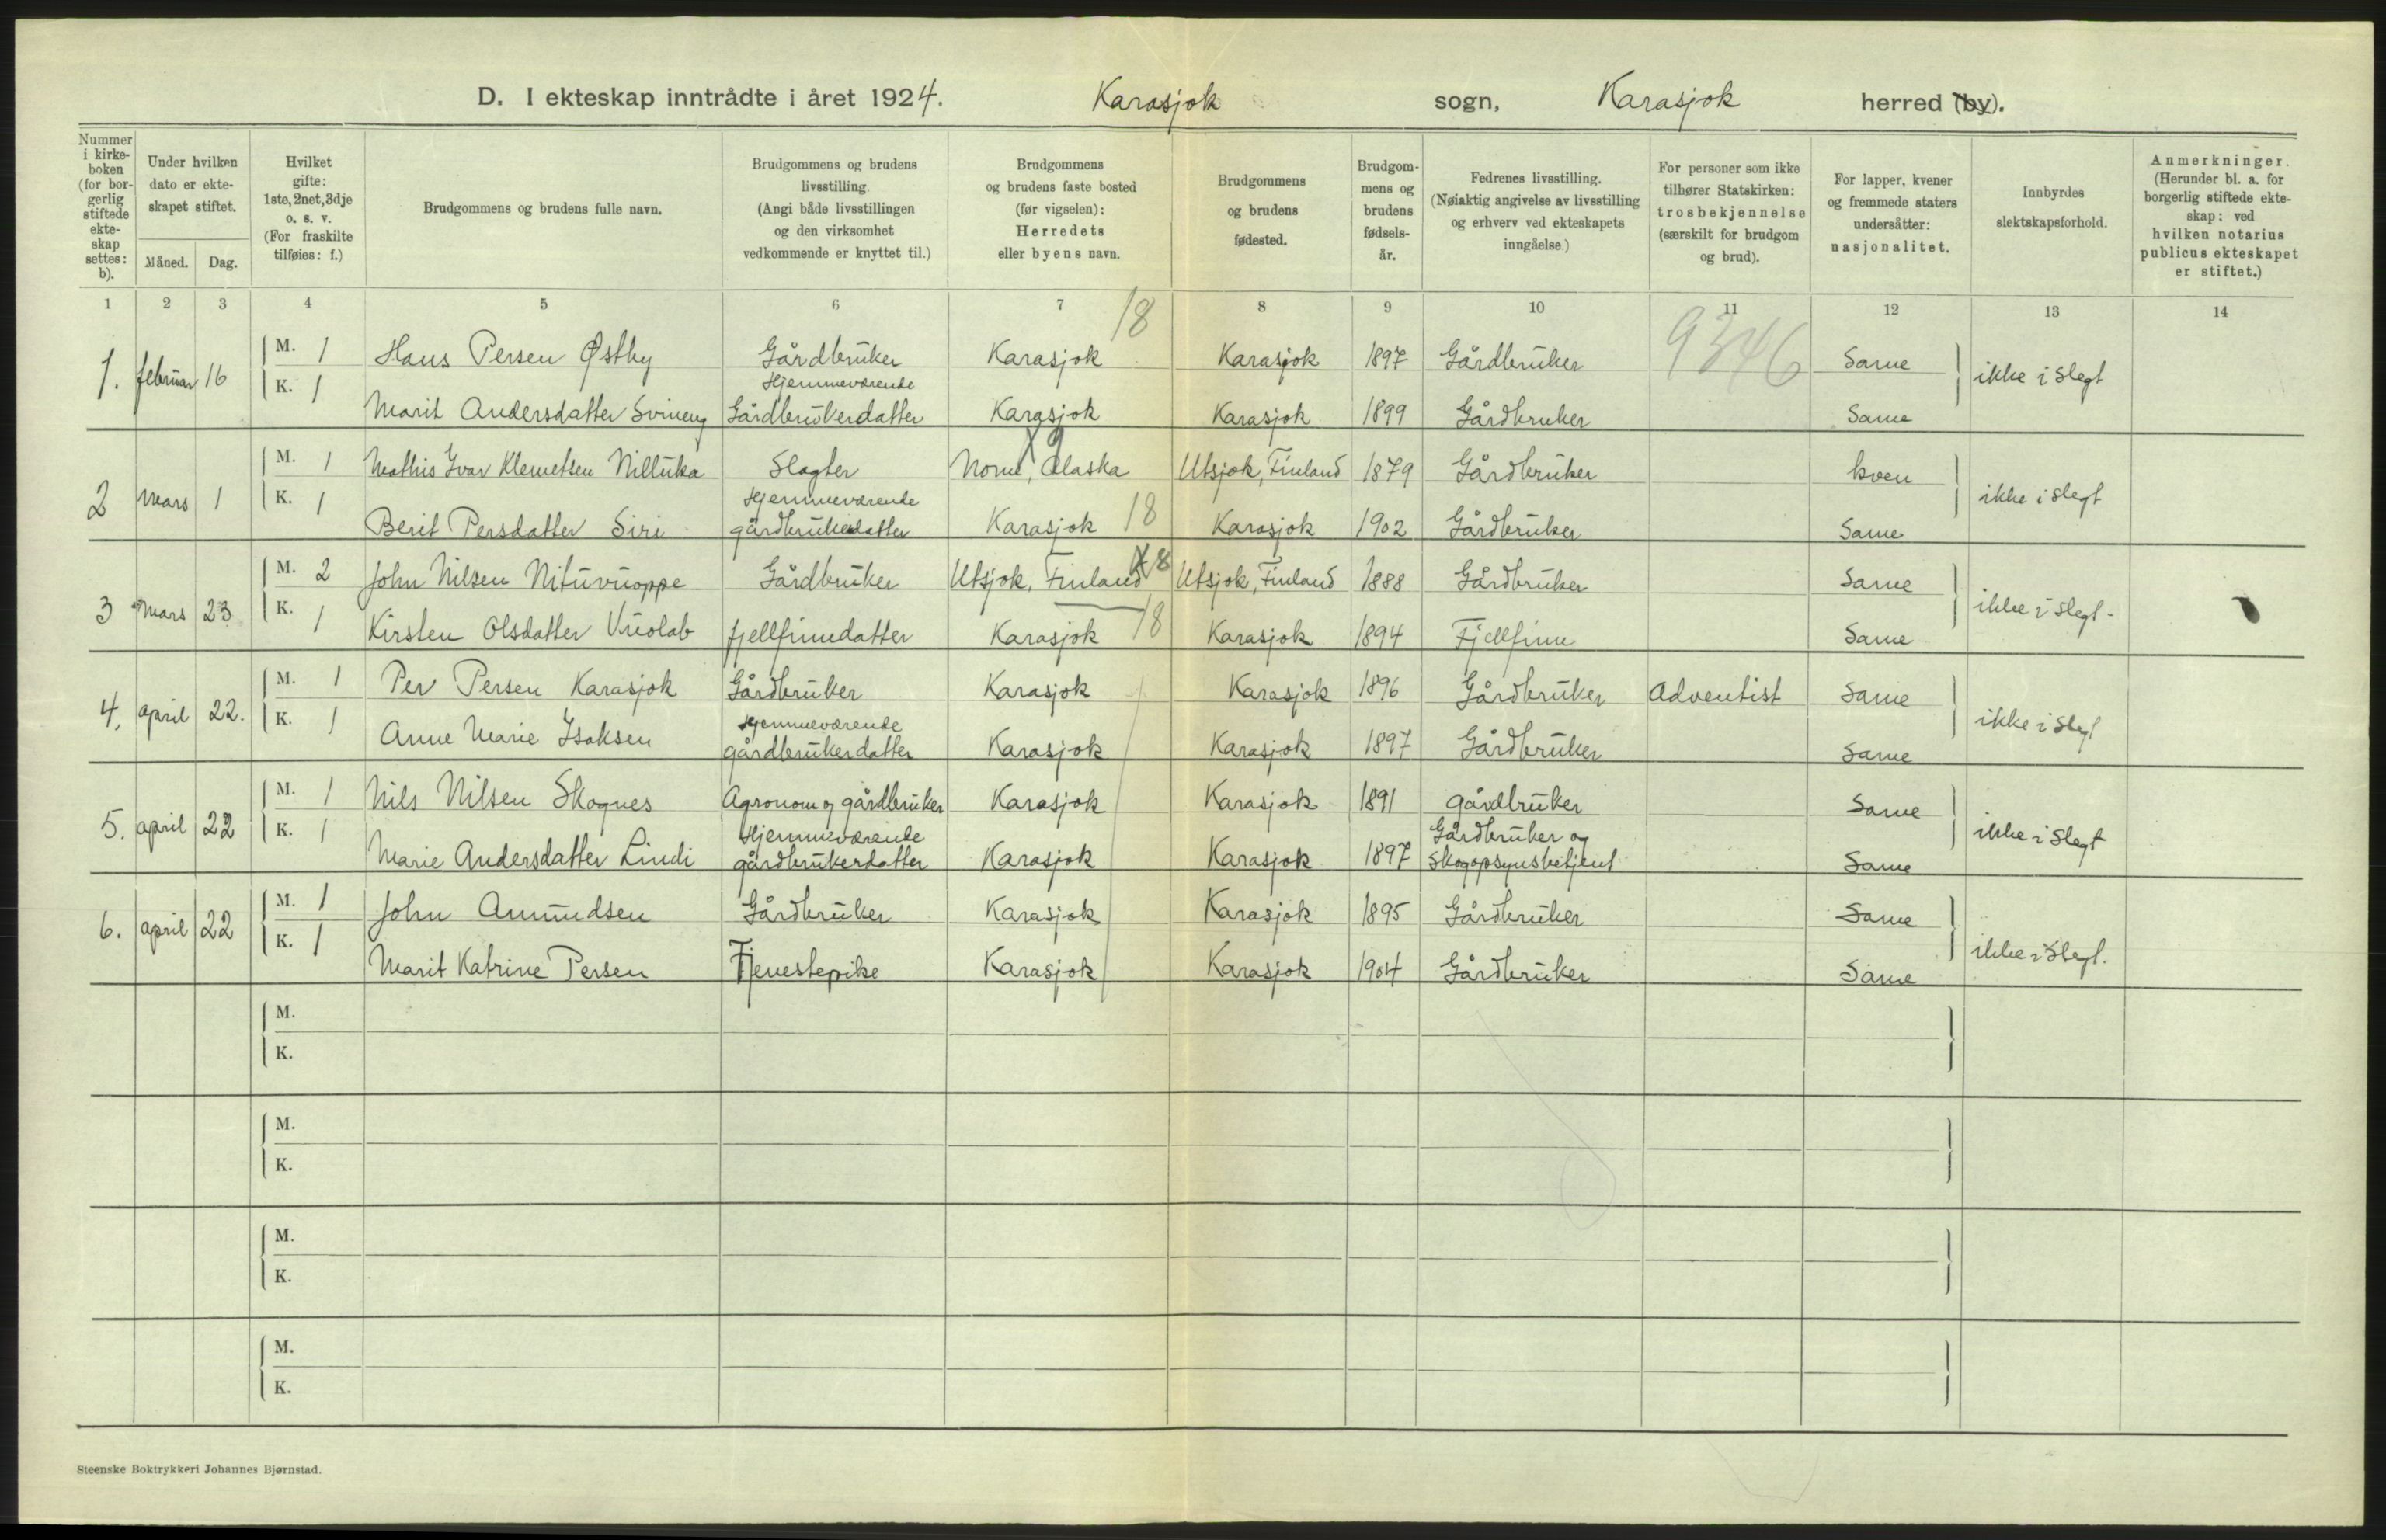 D. I ekteskap inntrådte i året 1924. Karasjok sogn, Karasjok herred (by).
Nummer i kirkeboken (for borgerlig stiftede ekteskap settes: b).
Under hvilken dato er ekteskapet stiftet.
Måned. Dag.
Hvilket gifte: 1ste, 2net, 3dje o. s. v. (For fraskilte tilføies: f.)
Brudgommens og brudens fulle navn.
Brudgommens og brudens livsstilling. (Angi både livsstillingen og den virksomhet vedkommende er knyttet til.)
Brudgommens og brudens faste bosted (før vigselen): Herredets eller byens navn.
Brudgommens og brudens fødested.
Brudgommens og brudens fødselsår.
Fedrenes livsstilling. (Nøiaktig angivelse av livsstilling og erhverv ved ekteskapets inngåelse.)
For personer som ikke tilhører Statskirken: trosbekjennelse (særskilt for brudgom og brud).
For lapper, kvener og fremmede staters undersåtter: nasjonalitet.
Innbyrdes slektskapsforhold.
Anmerkninger. (Herunder bl. a. for borgerlig stiftede ekteskap: ved hvilken notarius publicus ekteskapet er stiftet.)
1 2 3 4 5 6 7 8 9 10 11 12 13 14
18 9346
1. februar 16 M. 1 Hans Persen Østby Gårdbruker Karasjok Karasjok 1897 Gårdbruker Same ikke i slegt
K. 1 Marit Andersdatter Svineng Hjemmeværende Gårdbrukerdatter Karasjok Karasjok 1899 Gårdbruker Same
2 Mars 1 M. 1 Mathis Ivar Klemetsen Nilluka Slagter Nome, Alaska Utsjok, Finland 1879 Gårdbruker kven ikke i slegt
K. 1 Berit Persdatter Siri Hjemmeværende gårdbrukerdatter Karasjok 18 Karasjok 1902 Gårdbruker Same
3 Mars 23 M. 2 John Nilsen Nituvuoppe Gårdbruker Utsjok, Finland Utsjok, Finland 1888 Gårdbruker Same ikke i slegt.
K. 1 Kirsten Olsdatter Vuolab fjellfinnedatter Karasjok 18 Karasjok 1894 Fjellfinn Same
4. april 22. M. 1 Per Persen Karasjok Gårdbruker Karasjok Karasjok 1896 Gårdbruker Adventist Same ikke i slegt
K. 1 Anne Marie Isaksen Hjemmeværende gårdbrukerdatter Karasjok Karasjok 1897 Gårdbruker Same
5. april 22 M. 1 Nils Nilsen Skognes Agronom og gårdbruker Karasjok Karasjok 1891 gårdbruker Same ikke i slegt
K. 1 Marie Andersdatter Lindi Hjemmeværende gårdbrukerdatter Karasjok Karasjok 1897 Gårdbruker og Skogopsynsbetjent Same
6. april 22 M. 1 John Amundsen Gårdbruker Karasjok Karasjok 1895 Gårdbruker Same ikke i slegt.
K. 1 Marit Katrine Persen Tjenestepike Karasjok Karasjok 1904 Gårdbruker Same
M.
K.
M.
K.
M.
K.
M.
K.
Steenske Boktrykkeri Johannes Bjørnstad.